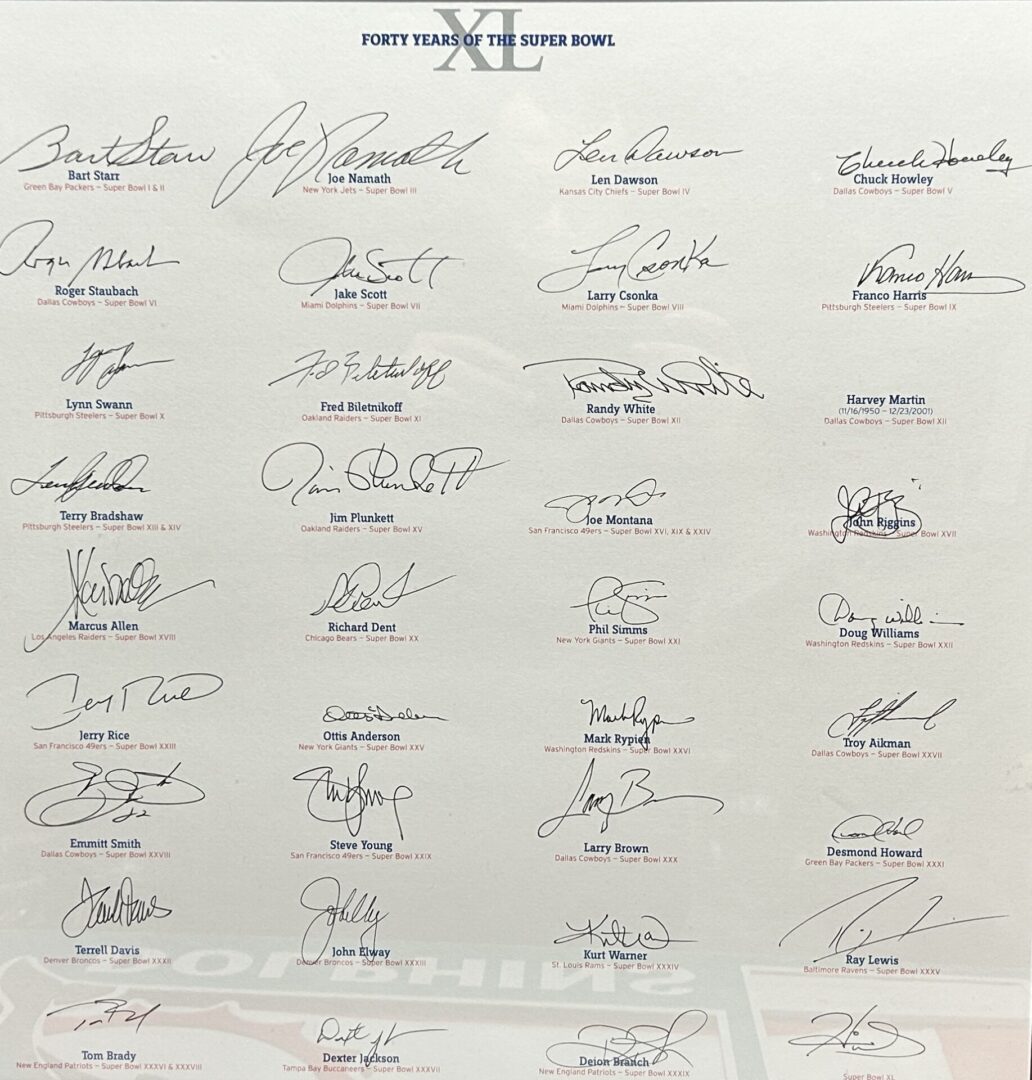 XL
FORTY YEARS OF THE SUPER BOWL
Bart Starr
Bart Starr
Green Bay Packers – Super Bowl I & II
Joe Namath
Joe Namath
New York Jets – Super Bowl III
Len Dawson
Len Dawson
Kansas City Chiefs – Super Bowl IV
Chuck Howley
Chuck Howley
Dallas Cowboys – Super Bowl V
Roger Staubach
Roger Staubach
Dallas Cowboys – Super Bowl VI
Jake Scott
Jake Scott
Miami Dolphins – Super Bowl VII
Larry Csonka
Larry Csonka
Miami Dolphins – Super Bowl VIII
Franco Harris
Franco Harris
Pittsburgh Steelers – Super Bowl IX
Lynn Swann
Pittsburgh Steelers – Super Bowl X
Fred Biletnikoff
Fred Biletnikoff
Oakland Raiders – Super Bowl XI
Randy White
Randy White
Dallas Cowboys – Super Bowl XII
Harvey Martin
(11/16/1950 – 12/23/2001)
Dallas Cowboys – Super Bowl XII
Terry Bradshaw
Pittsburgh Steelers – Super Bowl XIII & XIV
Jim Plunkett
Jim Plunkett
Oakland Raiders – Super Bowl XV
Joe Montana
San Francisco 49ers – Super Bowl XVI, XIX & XXIV
John Riggins
Washington Redskins – Super Bowl XVII
Marcus Allen
Los Angeles Raiders – Super Bowl XVIII
Richard Dent
Chicago Bears – Super Bowl XX
Phil Simms
New York Giants – Super Bowl XXI
Doug Williams
Doug Williams
Washington Redskins – Super Bowl XXII
Jerry Rice
Jerry Rice
San Francisco 49ers – Super Bowl XXIII
Ottis Anderson
New York Giants – Super Bowl XXV
Mark Rypien
Mark Rypien
Washington Redskins – Super Bowl XXVI
Troy Aikman
Dallas Cowboys – Super Bowl XXVII
22
Emmitt Smith
Dallas Cowboys – Super Bowl XXVIII
Steve Young
Steve Young
San Francisco 49ers – Super Bowl XXIX
Larry Brown
Dallas Cowboys – Super Bowl XXX
Desmond Howard
Green Bay Packers – Super Bowl XXXI
Terrell Davis
Denver Broncos – Super Bowl XXXII
John Elway
Denver Broncos – Super Bowl XXXIII
Kurt Warner
St. Louis Rams – Super Bowl XXXIV
Ray Lewis
Baltimore Ravens – Super Bowl XXXV
Tom Brady
New England Patriots – Super Bowl XXXVI & XXXVIII
Dexter Jackson
Tampa Bay Buccaneers – Super Bowl XXXVII
Deion Branch
New England Patriots – Super Bowl XXXIX
Super Bowl XL